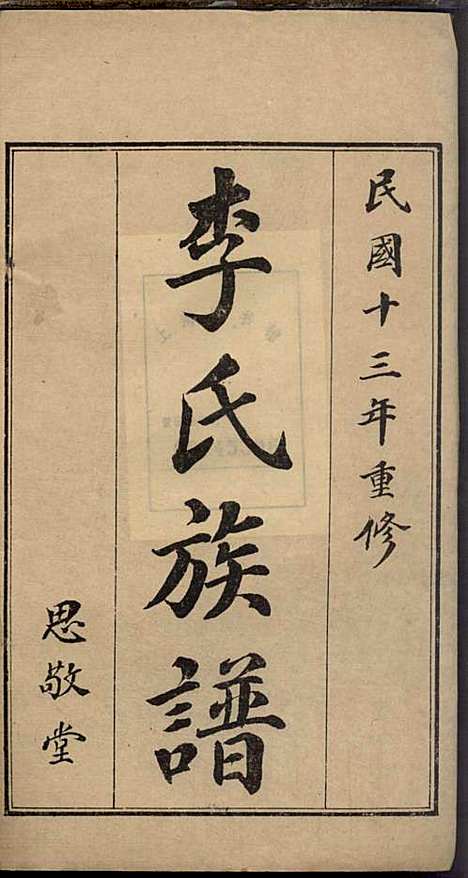 民國十三年重修
李氏族譜
思敬堂